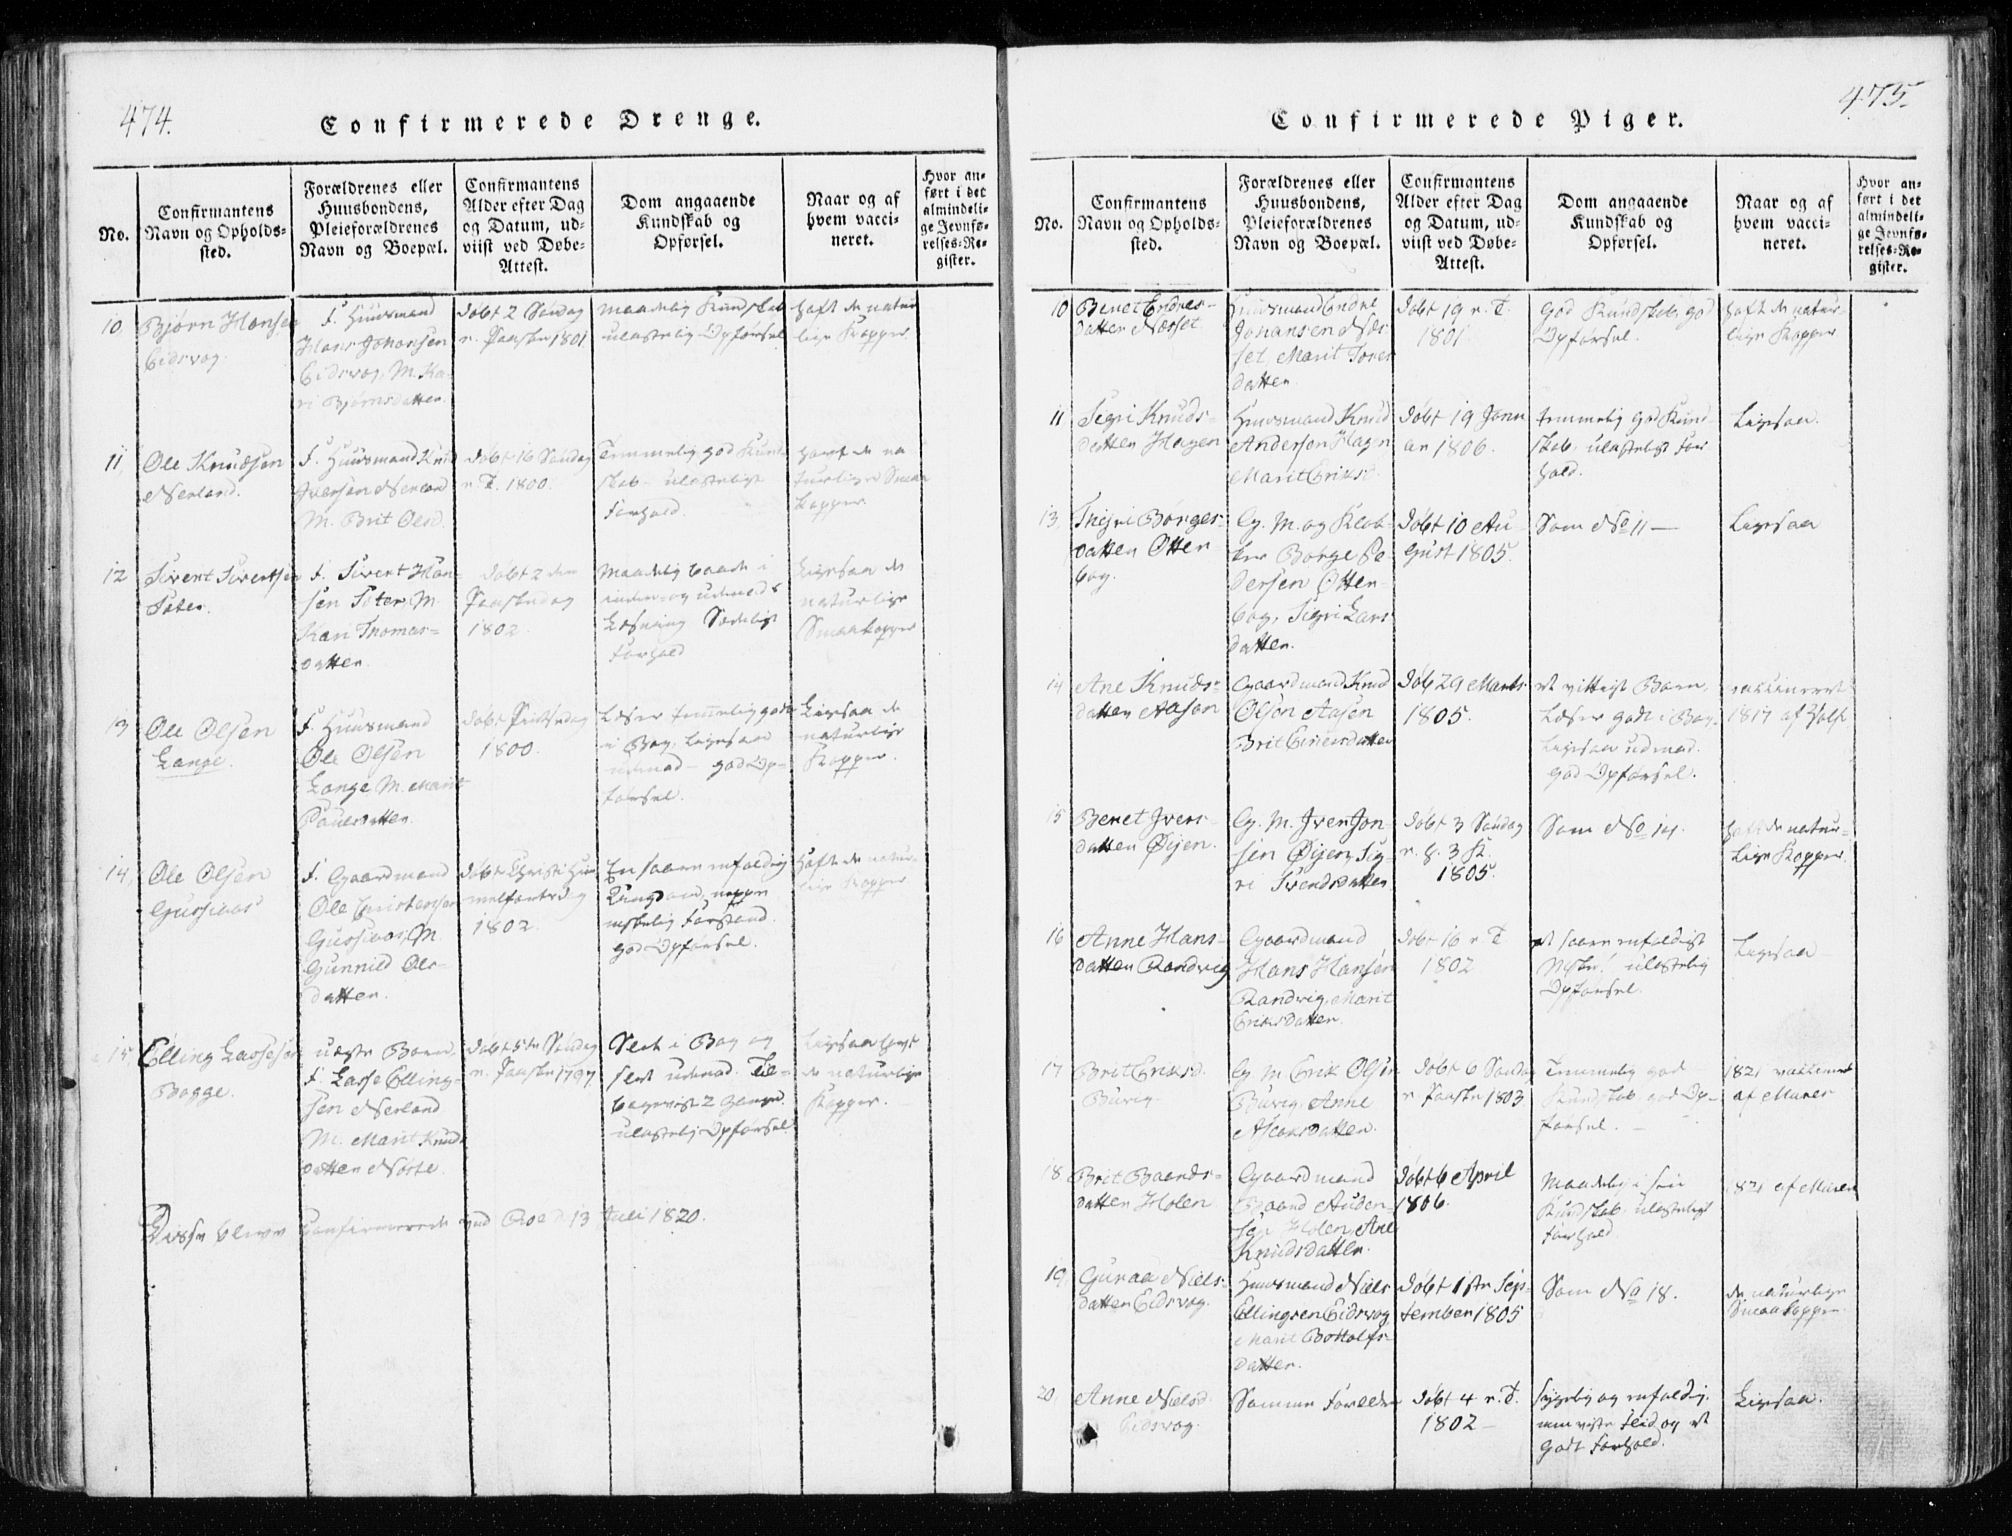 474.
Confirmerede Drenge.
No.
Confirmantens
Navn og Opholds-
sted.
Forældrenes eller
Huusbondens,
Pleieforældrenes
Navn og Boepæl.
Confirmantens
Alder efter Dag
og Datum, ud-
viist ved Døbe-
Attest.
Dom angaaende
Kundskab og
Opførsel.
Naar og af
hvem vacci-
neret.
Hvor an-
ført i det
almindeli-
ge Jevnfø-
relses-Re-
gister.
10
Bjørn Hansen
Eidsvog.
F. Huusmand
Hans Johansen
Eidsvog, M. Ka-
ri Bjørnsdatter.
døbt 2 Søndag
n. Paaske 1801
maadelig Kundskab
ulastelig Opførsel
haft de natur
lige Kopper.
11,
Ole Knudsen
Nerland.
F. Huusmand Knud
Iversen Nerland
M. Brit Olsd.
døbt 16 Søndag
n. T. 1800.
Temmelig god Kund-
skab – ulasteligt
Forhold.
haft de na
turlige Smaa
kopper.
12
Sivert Sivertsen
Sæter.
F. Sivert Han-
sen Sæter, M.
Kari Thomas-
datter.
døbt 2 den
Paaskedag
1802.
Maadelig baade i
inden- og udenads
Læsning Sædeligt
Forhold
Ligesaa de
naturlige
Smaakopper
13
Ole Olsen
Lange.
F. Huusmand
Ole Olsen
Lange M. Marit
Paulsdatter.
døbt
1800.
Læser temelig godt
i Bog, Ligesaa
udenad – god Op-
førsel.
Ligesaa de
naturlige
Kopper.
14,
Ole Olsen
Gussiaas
F. Gaardmand
Ole Christensen
Gussiaas, M.
Gunnild Ols-
datter.
døbt Christi Him
melfartsdag
1802.
En saare enfoldig
Forstand.
god Opførsel.
Haft de natur-
lige Kopper
15
Elling Lassesen
Bogge.
uægte Barn,
F. Lasse Elling-
sen Nerland
M. Marit Knuds
datter Nørste.
døbt 5te Søndag
n. Paaske 1797
Slet i Bog og
slet udenad. Til-
bageviist 2 Gange.
ulastelig Opførsel.
Ligesaa havt
de naturlige
Kopper.
Disse bleve Confirmerede ved Røe d. 13 Juli 1820.
475.
Confirmerede Piger.
No.
Confirmantens
Navn og Opholds-
sted.
Forældrenes eller
Huusbondens,
Pleieforældrenes
Navn og Boepæl.
Confirmantens
Alder efter Dag
og Datum, ud-
viist ved Døbe-
Attest.
Dom angaaende
Kundskab og
Opførsel.
Naar og af
hvem vacci-
neret.
Hvor an-
ført i det
almindeli-
ge Jevnfø-
relses-Re-
gister.
10
Beret Endres-
datter Næsset.
Huusmand Endre
Johansen Næs
set, Marit Tores
datter.
døbt 19 n. T.
1801
God Kundskab, god
Opførsel.
haft de natur-
lige Kopper
11
Segri Knuds-
datter Hagen
Huusmand Knud
Anderson Hagen
Marit Eriksd.
døbt 19 Janu
ar 1806.
temmelig god Kund
skab, ulasteligt For
hold.
Ligesaa.
13
Børges-
datter Otter
bog.
G. M. og Klok-
ker Børge Pe-
dersen Otter-
bog, Sigri Lars
datter.
døbt 10 Au-
gust 1805.
Som No 11 –
Ligesaa
14
Ane Knuds-
datter Aasen
Gaardmand Knud
Olsen Aasen
Brit Einersdatter
døb 29 Marts
1805.
et vittigt Barn,
Læser godt i Bog,
Ligesaa udenad.
god Opførsel.
vaccineret
1817 af Holst
15
Beret Ivers-
datter Øijen.
G. M. Iver Jon-
sen Øijen, Sig-
ri Svendsdatter
døbt 3 Søndag
n. H. 3 K.
1805.
Som No 14.
haft de natur-
lige Kopper.
16
Anne Hans-
datter Randvig
Gaardmand
Hans Hansen
Randvig, Marit
Eriksdatter.
døbt 16 n. T.
1802
et saare enfoldigt
ulastelig
Opførsel.
Ligesaa
17
Brit Eriksd.
Buvig
G. M. Erik Olsen
Buvig, Anne
Aslaksdatter.
døbt 6 Søndag
n. Paaske 1803
Temmelig god
Kundskab, god Op-
førsel. –
1821 vaccineret
af Muren
18
Brit Baards-
datter Holen
Gaardmand
Baard Auden-
sen Holen Ane
Knudsdatter.
døbt 6 April
1806.
Maadelig i sin
Kundskab, ulasteligt
Forhold
1821 af Muren
19
Guraa Niels-
datter Eidsvog.
Huusmand Niels
Ellingsen Eidsvog,
Marit Bottolfs-
datter.
døbt 1ste Sep-
tember 1805
Som No 18.
de naturlige
Smaakopper.
20
Anne Nielsd.
Eidsvog.
Samme Forældre
døbt 4 n. T.
1802 –
Sygelig og enfoldig,
men viste Flid og et
godt Forhold.
Ligesaa.